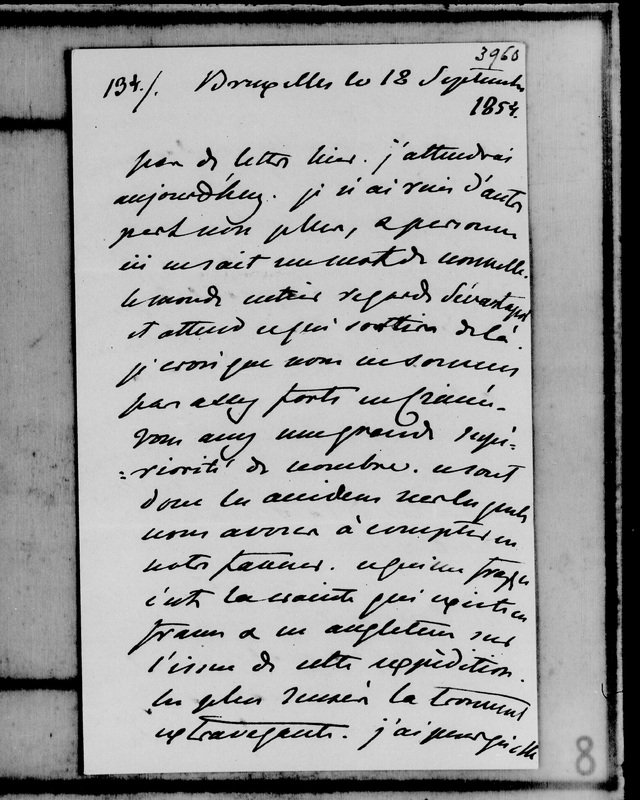 3960
134/. Bruxelles le 18 Septembre
1854.
pas de lettre hier. j'attendrai
aujourd'huy. je n'ai rien d'autre
part non plus, & personne
ici ne sait un mot de nouvelle.
le monde entier regarde Sévastopol
et attend ce qui sortira de là.
je crois que nous ne sommes
pas assez forts en Crimée.
vous avez une grande supé-
riorité de nombre. ce sont
donc les accidens sur lesquels
nous avons à compter en
notre faveur. ce qui me frappe
c'est la crainte qui existe en
france & en angleterre sur
l'issue de cette expédition.
les plus sensés la trouvent
extravagante. j'ai peur qu'elle
8